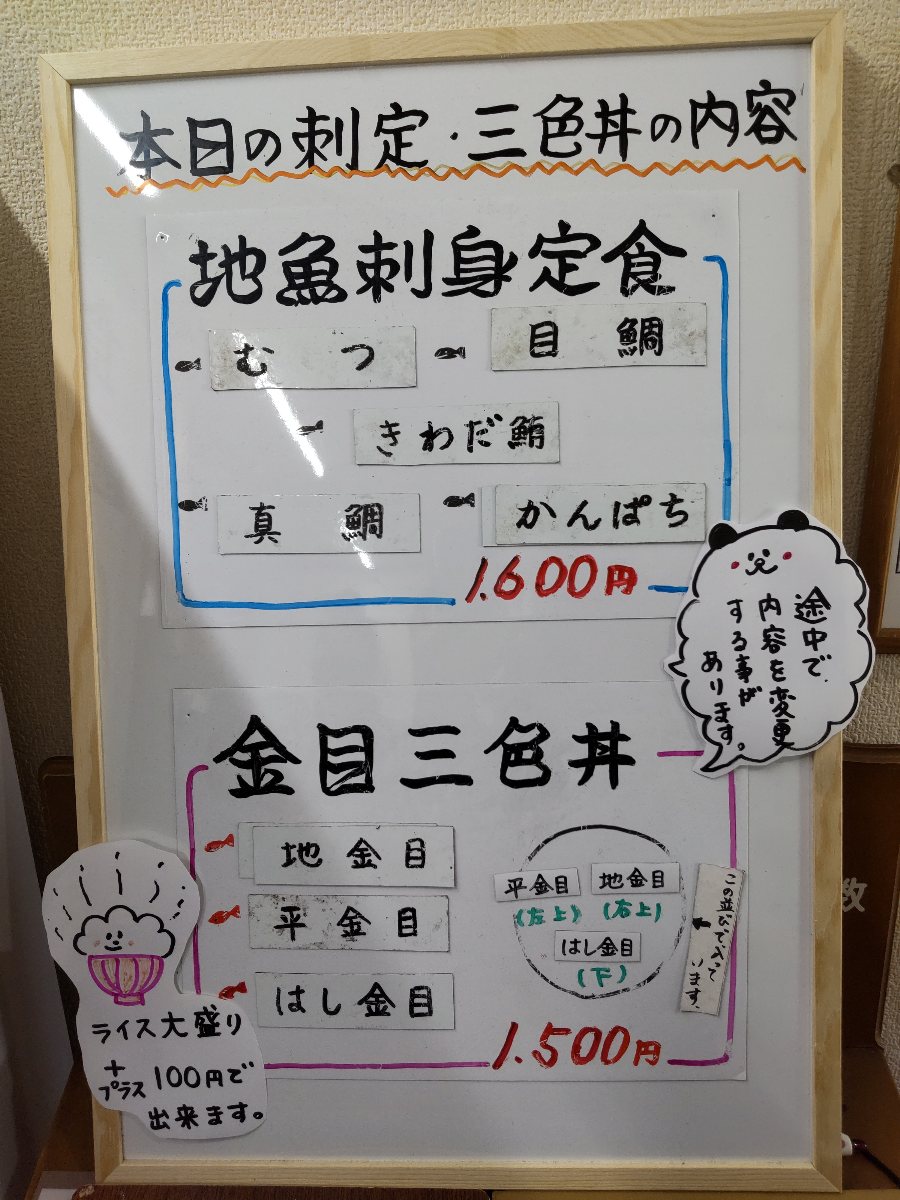 本日の刺定・三色丼の内容
地魚刺身定食
むつ
目鯛
きわだ鮪
真鯛
かんぱち
1.600円
途中で
内容を変更
する事が
あります。
金目三色丼
地金目
平金目
はし金目
平金目
(左上)
地金目
(右上)
はし金目
(下)
この並びで入って
います。
1.500円
ライス大盛り
+
プラス
100円で
出来ます。
数